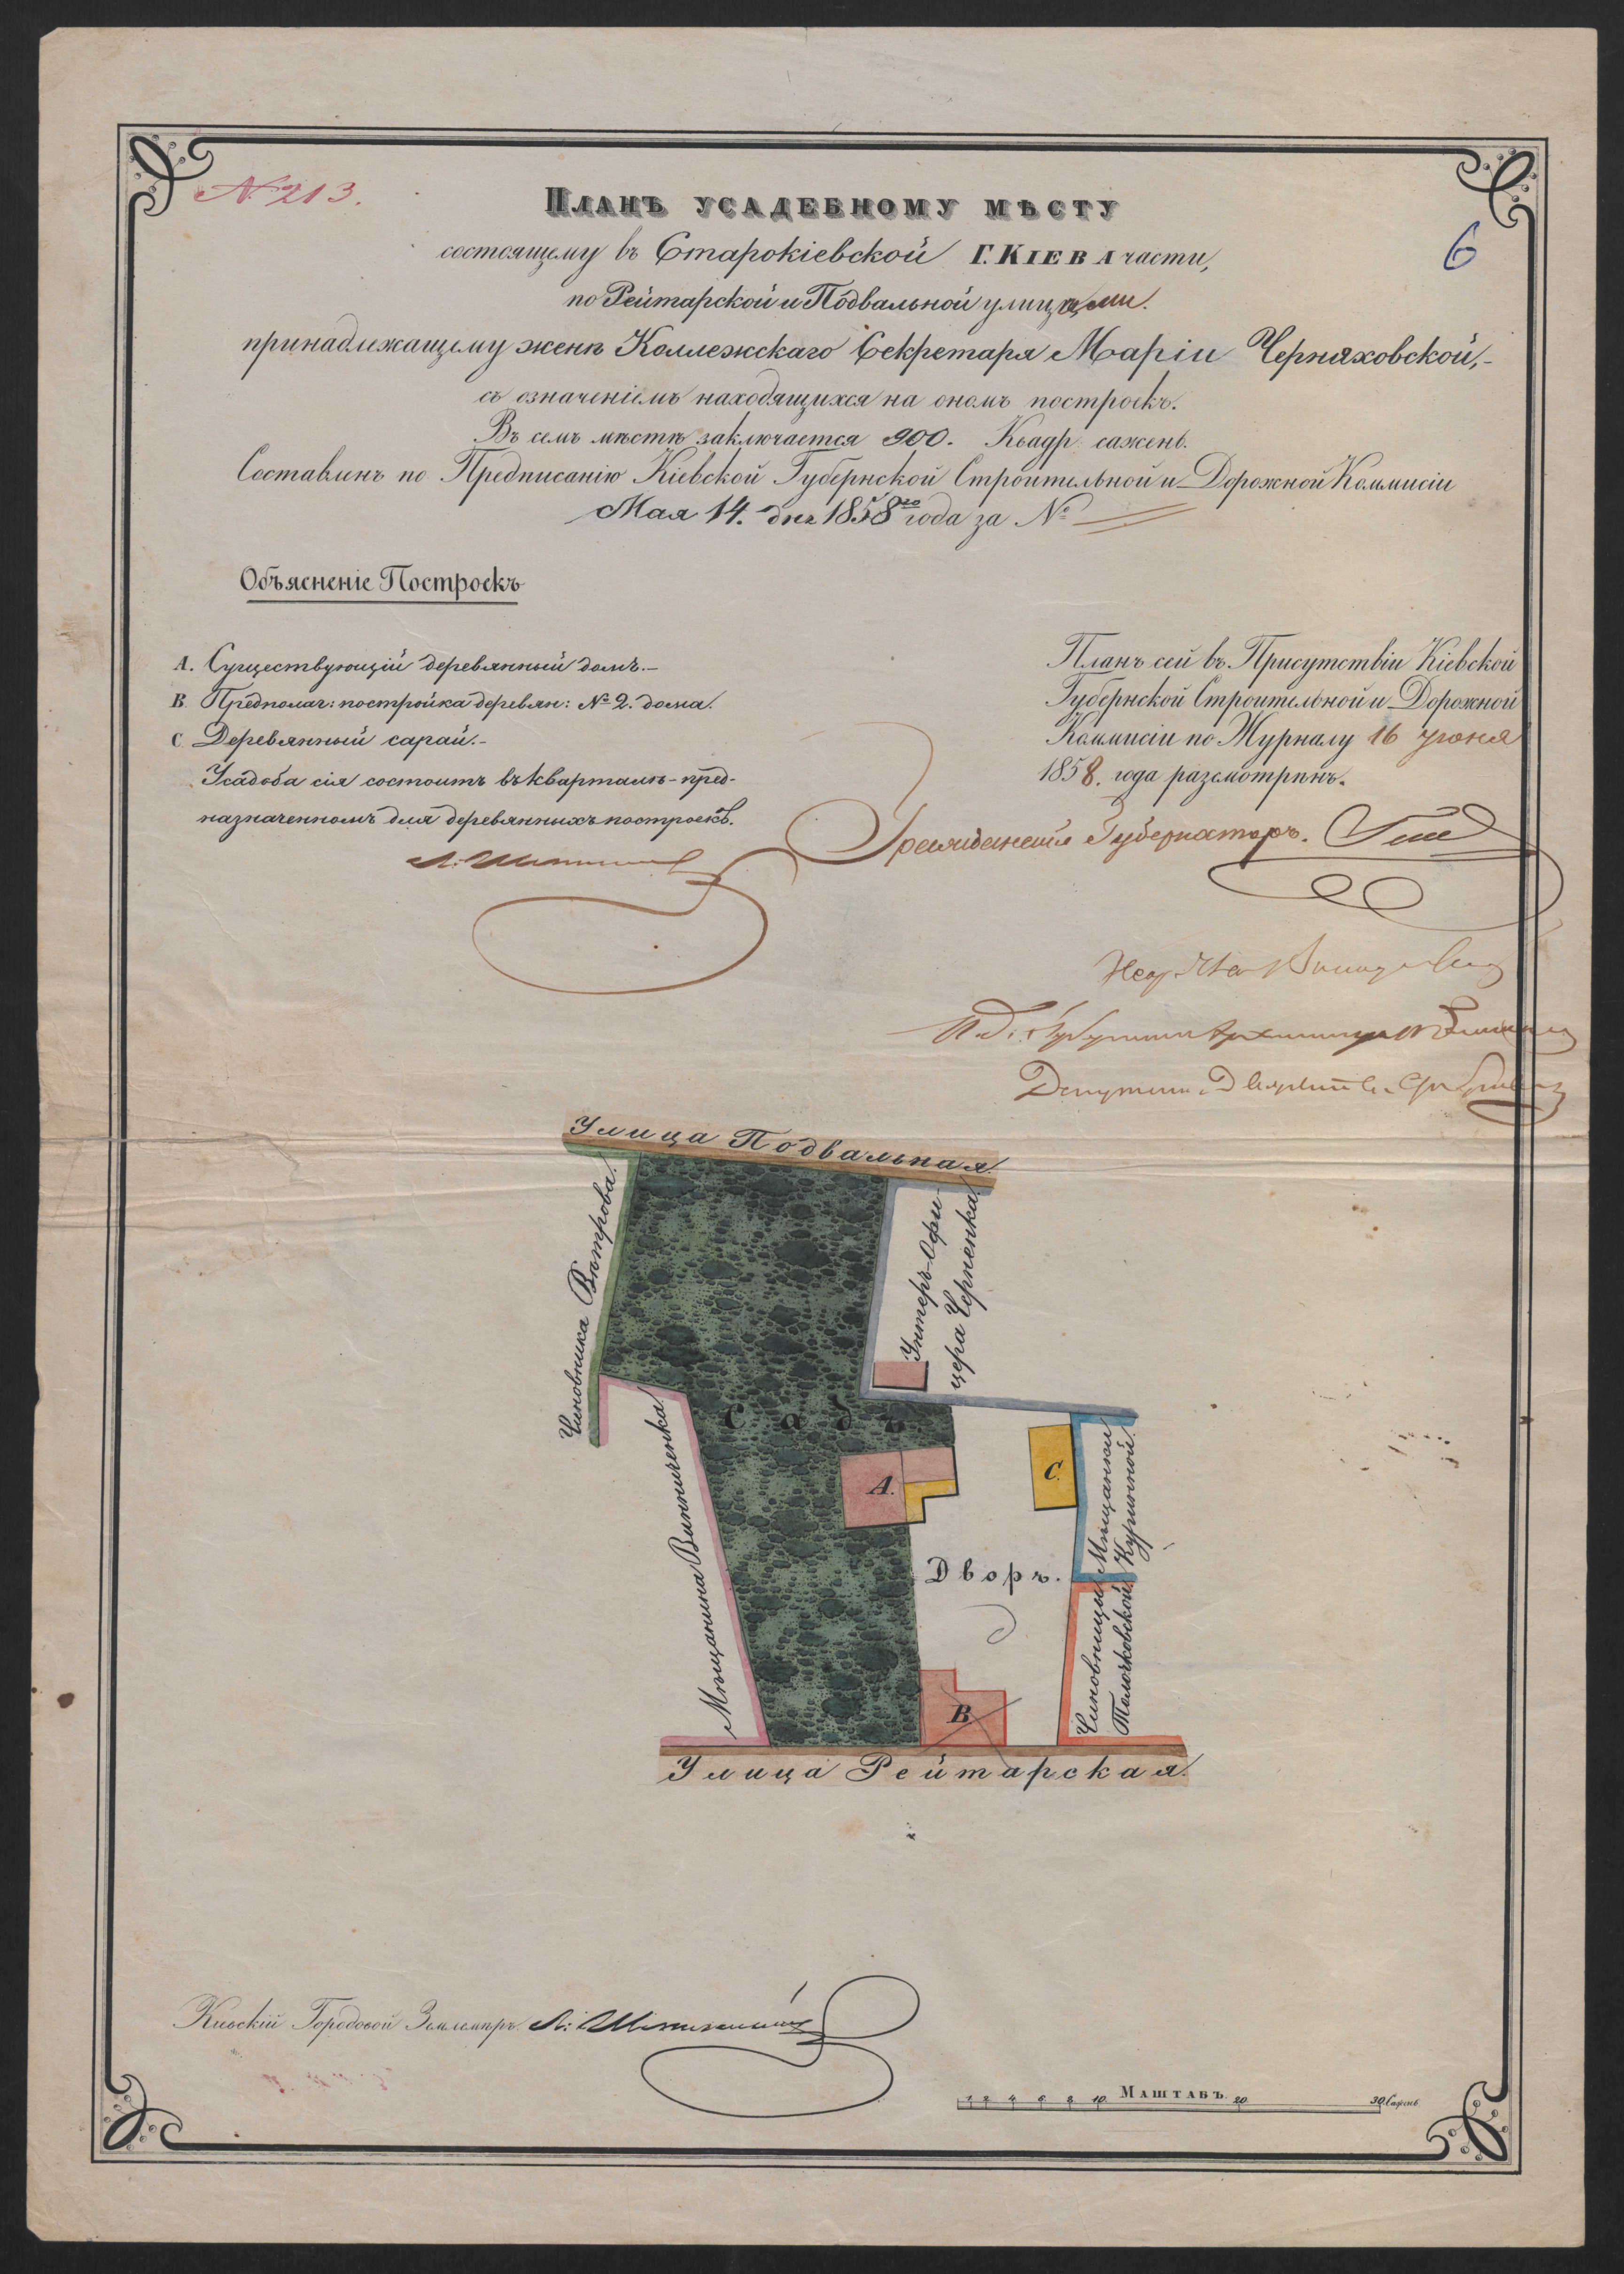 № 213.
6
Планъ усадебному мѣсту
состоящему въ Старокіевской Г. Кіева части,
по Рейтарской и Подвальной улицами.
принадлежащему женѣ Коллежскаго Секретаря Маріи Черняховской,-
съ означеніемъ находящихся на ономъ построекъ.
Въ семъ мѣстѣ заключается 900. Квадр. сажень.
Составленъ по Предписанію Кіевской Губернской Строительной и Дорожной Коммисіи
Мая 14. дня 1858го года за №
Объясненіе Построекъ
A. Существующій деревянный домъ.-
B. Предполаг: постройка деревян: № 2. дома.
C. Деревянный сарай.-
Усадьба сія состоитъ въ кварталѣ-пред-
назначенномъ для деревянныхъ построекъ.
Планъ сей въ Присутствіи Кіевской
Губернской Строительной и Дорожной
Коммисіи по Журналу 16 іюня
1858. года разсмотрѣнъ.
Гражданскій Губернаторъ.
Улица Подвальная.
Чиновника Вѣтрова.
Унтеръ-Офи-
цера Черненка.
Мѣщанина Винниченка
Садъ
A.
C.
Мѣщанки
Куринной.
Дворъ.
Чиновницы
B.
Улица Рейтарская.
Кіевскій Городовой Землемѣръ
1 2 4 6 8 10 Маштабъ. 20 30 Сажень